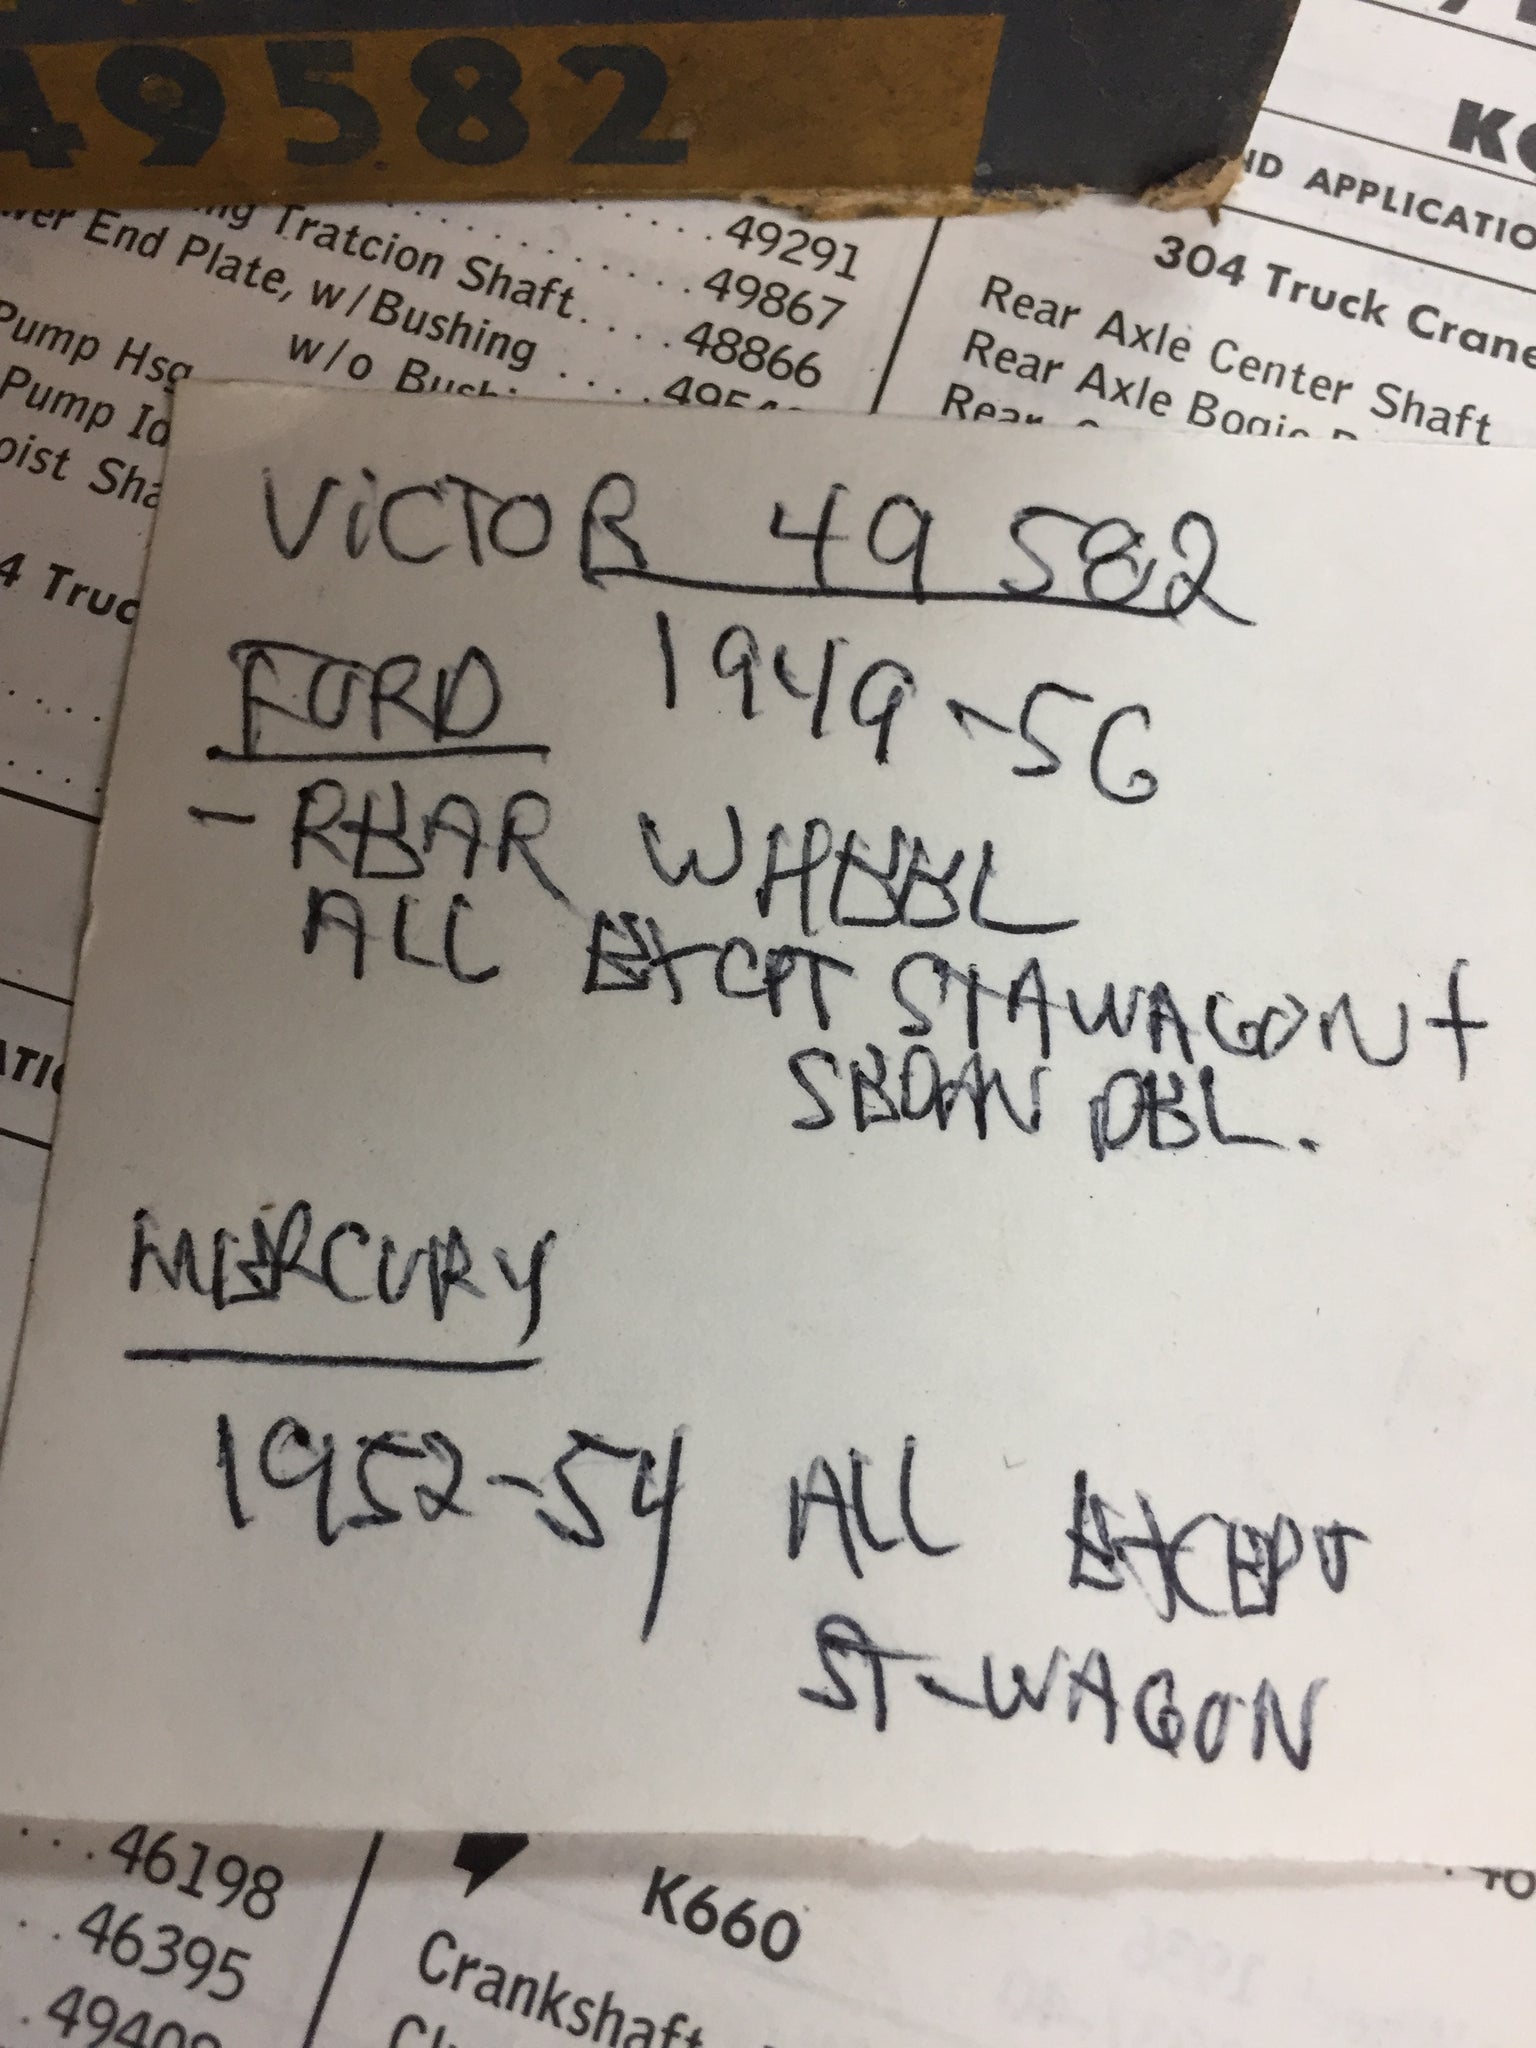 49582
ng Tratcion Shaft
49291
ver End Plate, w/Bushing
49867
w/o
48866
Pump Hsg
Pump
oist
4
ND APPLICATIO
304 Truck Crane
Rear Axle Center Shaft
Rear Axle Bogie
Rear
ViCTOR 49582
FORD 1949-56
- REAR WHEEL
ALL EXCPT STAWAGON +
SEDAN DEL.
MERCURY
1952-54 ALL EXCEPT
ST-WAGON
46198
46395
49409
K660
Crankshaft